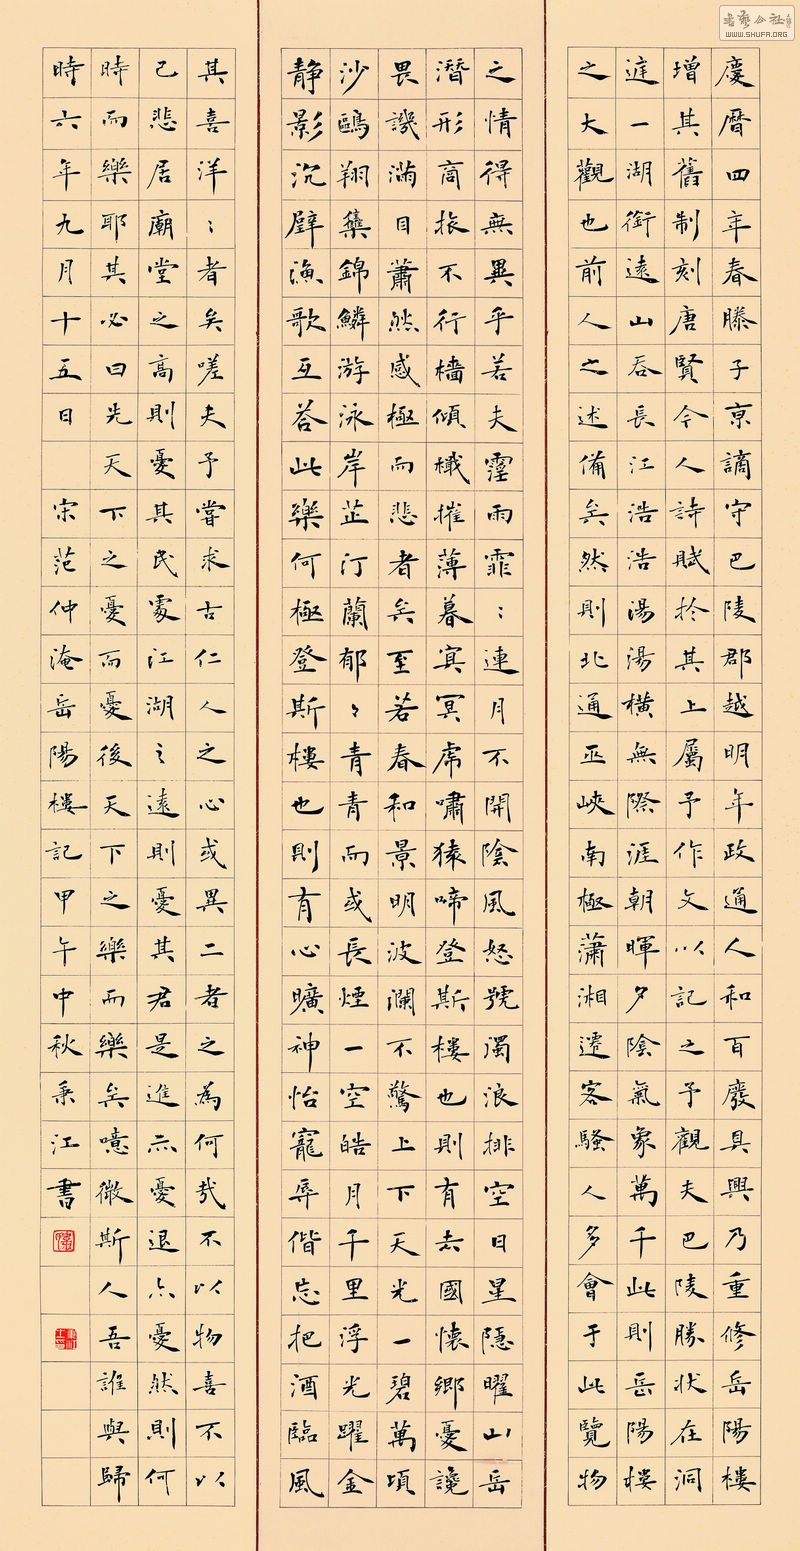 慶暦四年春滕子京謫守巴陵郡越明年政通人和百廢具興乃重修岳陽樓
增其舊制刻唐賢今人詩賦扵其上屬予作文以記之予觀夫巴陵勝狀在洞
庭一湖銜遠山吞長江浩浩湯湯橫無際涯朝暉夕陰氣象萬千此則岳陽樓
之大觀也前人之述備矣然則北通巫峽南極瀟湘遷客騷人多會于此覽物
之情得無異乎若夫霪雨霏〻連月不開陰風怒號濁浪排空日星隱曜山岳
潛形商旅不行檣傾檝摧薄暮冥冥虎嘯猿啼登斯樓也則有去國懷鄉憂讒
畏譏滿目蕭然感極而悲者矣至若春和景明波瀾不驚上下天光一碧萬頃
沙鷗翔集錦鱗游泳岸芷汀蘭郁〻青青而或長煙一空皓月千里浮光躍金
静影沉璧漁歌互答此樂何極登斯樓也則有心曠神怡寵辱偕忘把酒臨風
其喜洋〻者矣嗟夫予嘗求古仁人之心或異二者之為何哉不以物喜不以
己悲居廟堂之高則憂其民處江湖之遠則憂其君是進亦憂退亦憂然則何
時而樂耶其必曰先天下之憂而憂後天下之樂而樂矣噫微斯人吾誰與歸
時六年九月十五日 宋范仲淹岳陽樓記甲午中秋秉江書
書藝公社
WWW.SHUFA.ORG